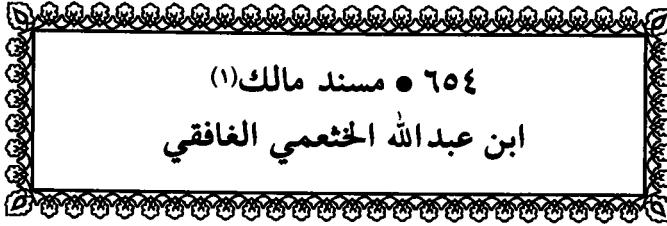 ٦٥٤ ● مسند مالك(١)
ابن عبد الله الخثعمي الغافقي